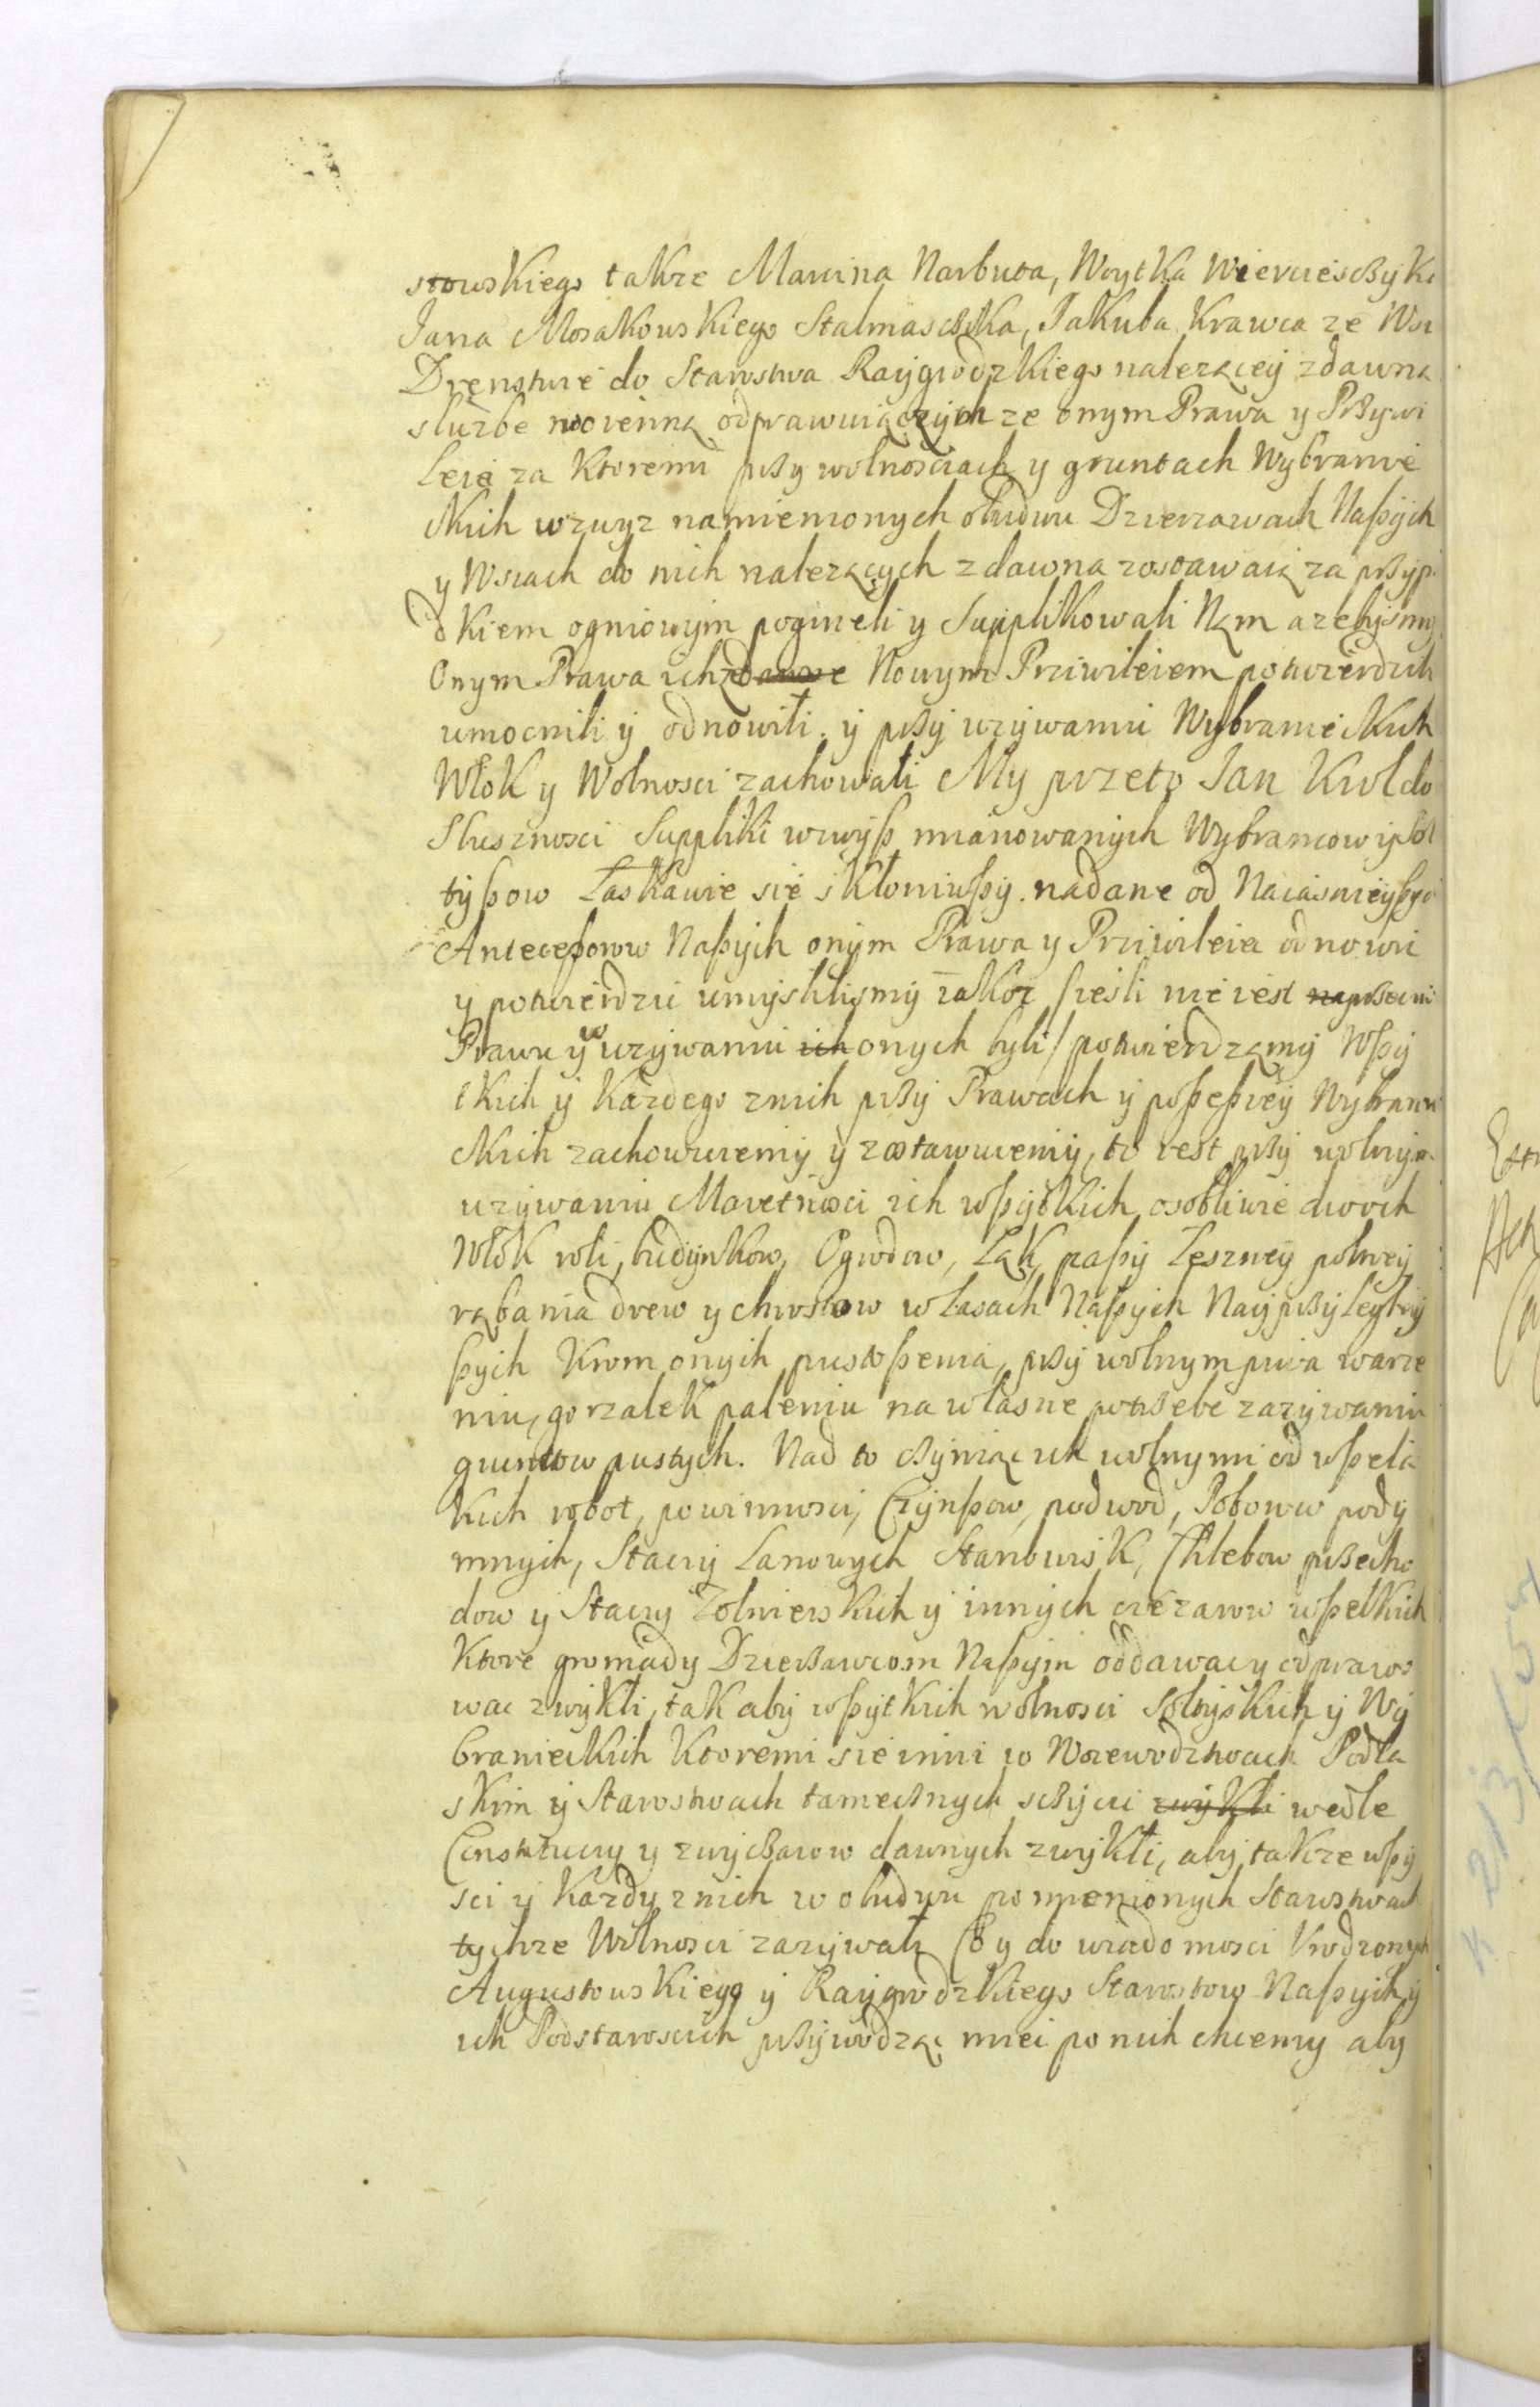 stowskiego takze Marcina Narbuta, Woytka Wiercieszyka
Jana Mosakowskiego Stalmaszka, Jakuba Krawca ze Wsi
Drenstwie do Starostwa Raygrodzkiego nalezącey zdawna
sluzbe woienną odprawuiączych ze onym Prawa y Przywi
leia za ktoremi przy wolnosciach y gruntach Wybranie
ckich wzwyz namienionych obudwu Dzierzawach Naszych
y Wsiach do nich nalezących zdawna zostawaią za przypa
dkiem ogniowym pogineli y Supplikowali Nąm azebysmy
Onym Prawa ich zdawne Nowym Priwileiem potwierdzili
umocnili y odnowili. y przy uzywaniu Wybranieckich
Włok y Wolnosci zachowali My przeto Jan Krol do
Slusznosci Suppliki wzwysz mianowanych Wybrancow y Soł
tyszow Łaskawie sie skłoniwszy. nadane od Naiasnieyszych
Antecessorow Naszych onym Prawa y Priwileia odnowi
y potwierdzic umyslilismy iakoz /iesli nie iest naprzeciw
Prawu y w uzywaniu ich onych byli/ potwierdzamy Wszy
tkich y Kazdego znich przy Prawach y possessyey Wybranie
ckich zachowuiemy y zostawuiemy, to iest przy wolnym
uzywaniu Maietnosci ich wszytkich osobliwie dwoch
Włok roli, budynkow, Ogrodow, Łąk, paszy Lesney polney
rąbania drew y chrostow w lasach Naszych Nayprzyleglej
szych krom onych pustoszenia, przy wolnym piwa warze
niu, gorzalek paleniu na własne potrzebe zazywaniu
gruntow pustych. Nad to czyniąc ich wolnymi od wszela
kich robot, powinnosci, Czynszow, podwod, Poborow pody
mnych, Stacry Lanowych Stanowisk, Chlebow przecho
dow y Stacry Zolnierskich y innych cięzarow wszelkich
Ktore gromady Dzierzawcom Naszym oddawac y odprawo
wac zwykli, tak aby wszytkich wolnosci Soltyskich y Wy
branieckich ktoremi sie inni w Woiewodztwach Podla
skim y Starostwach tamecznych sczyci zwykli wedle
Constytucry y zwyczaiow dawnych zwykli, aby takze wszy
sci y Kazdy znich w obudwu pomienionych Starostwach
tychze Wolnosci zazywali Co y do wiadomosci Urodzonych
Augustowskiego y Raygrodzkiego Starostow Naszych y
ich Podstaroscich przywodząc miec po nich chcemy aby